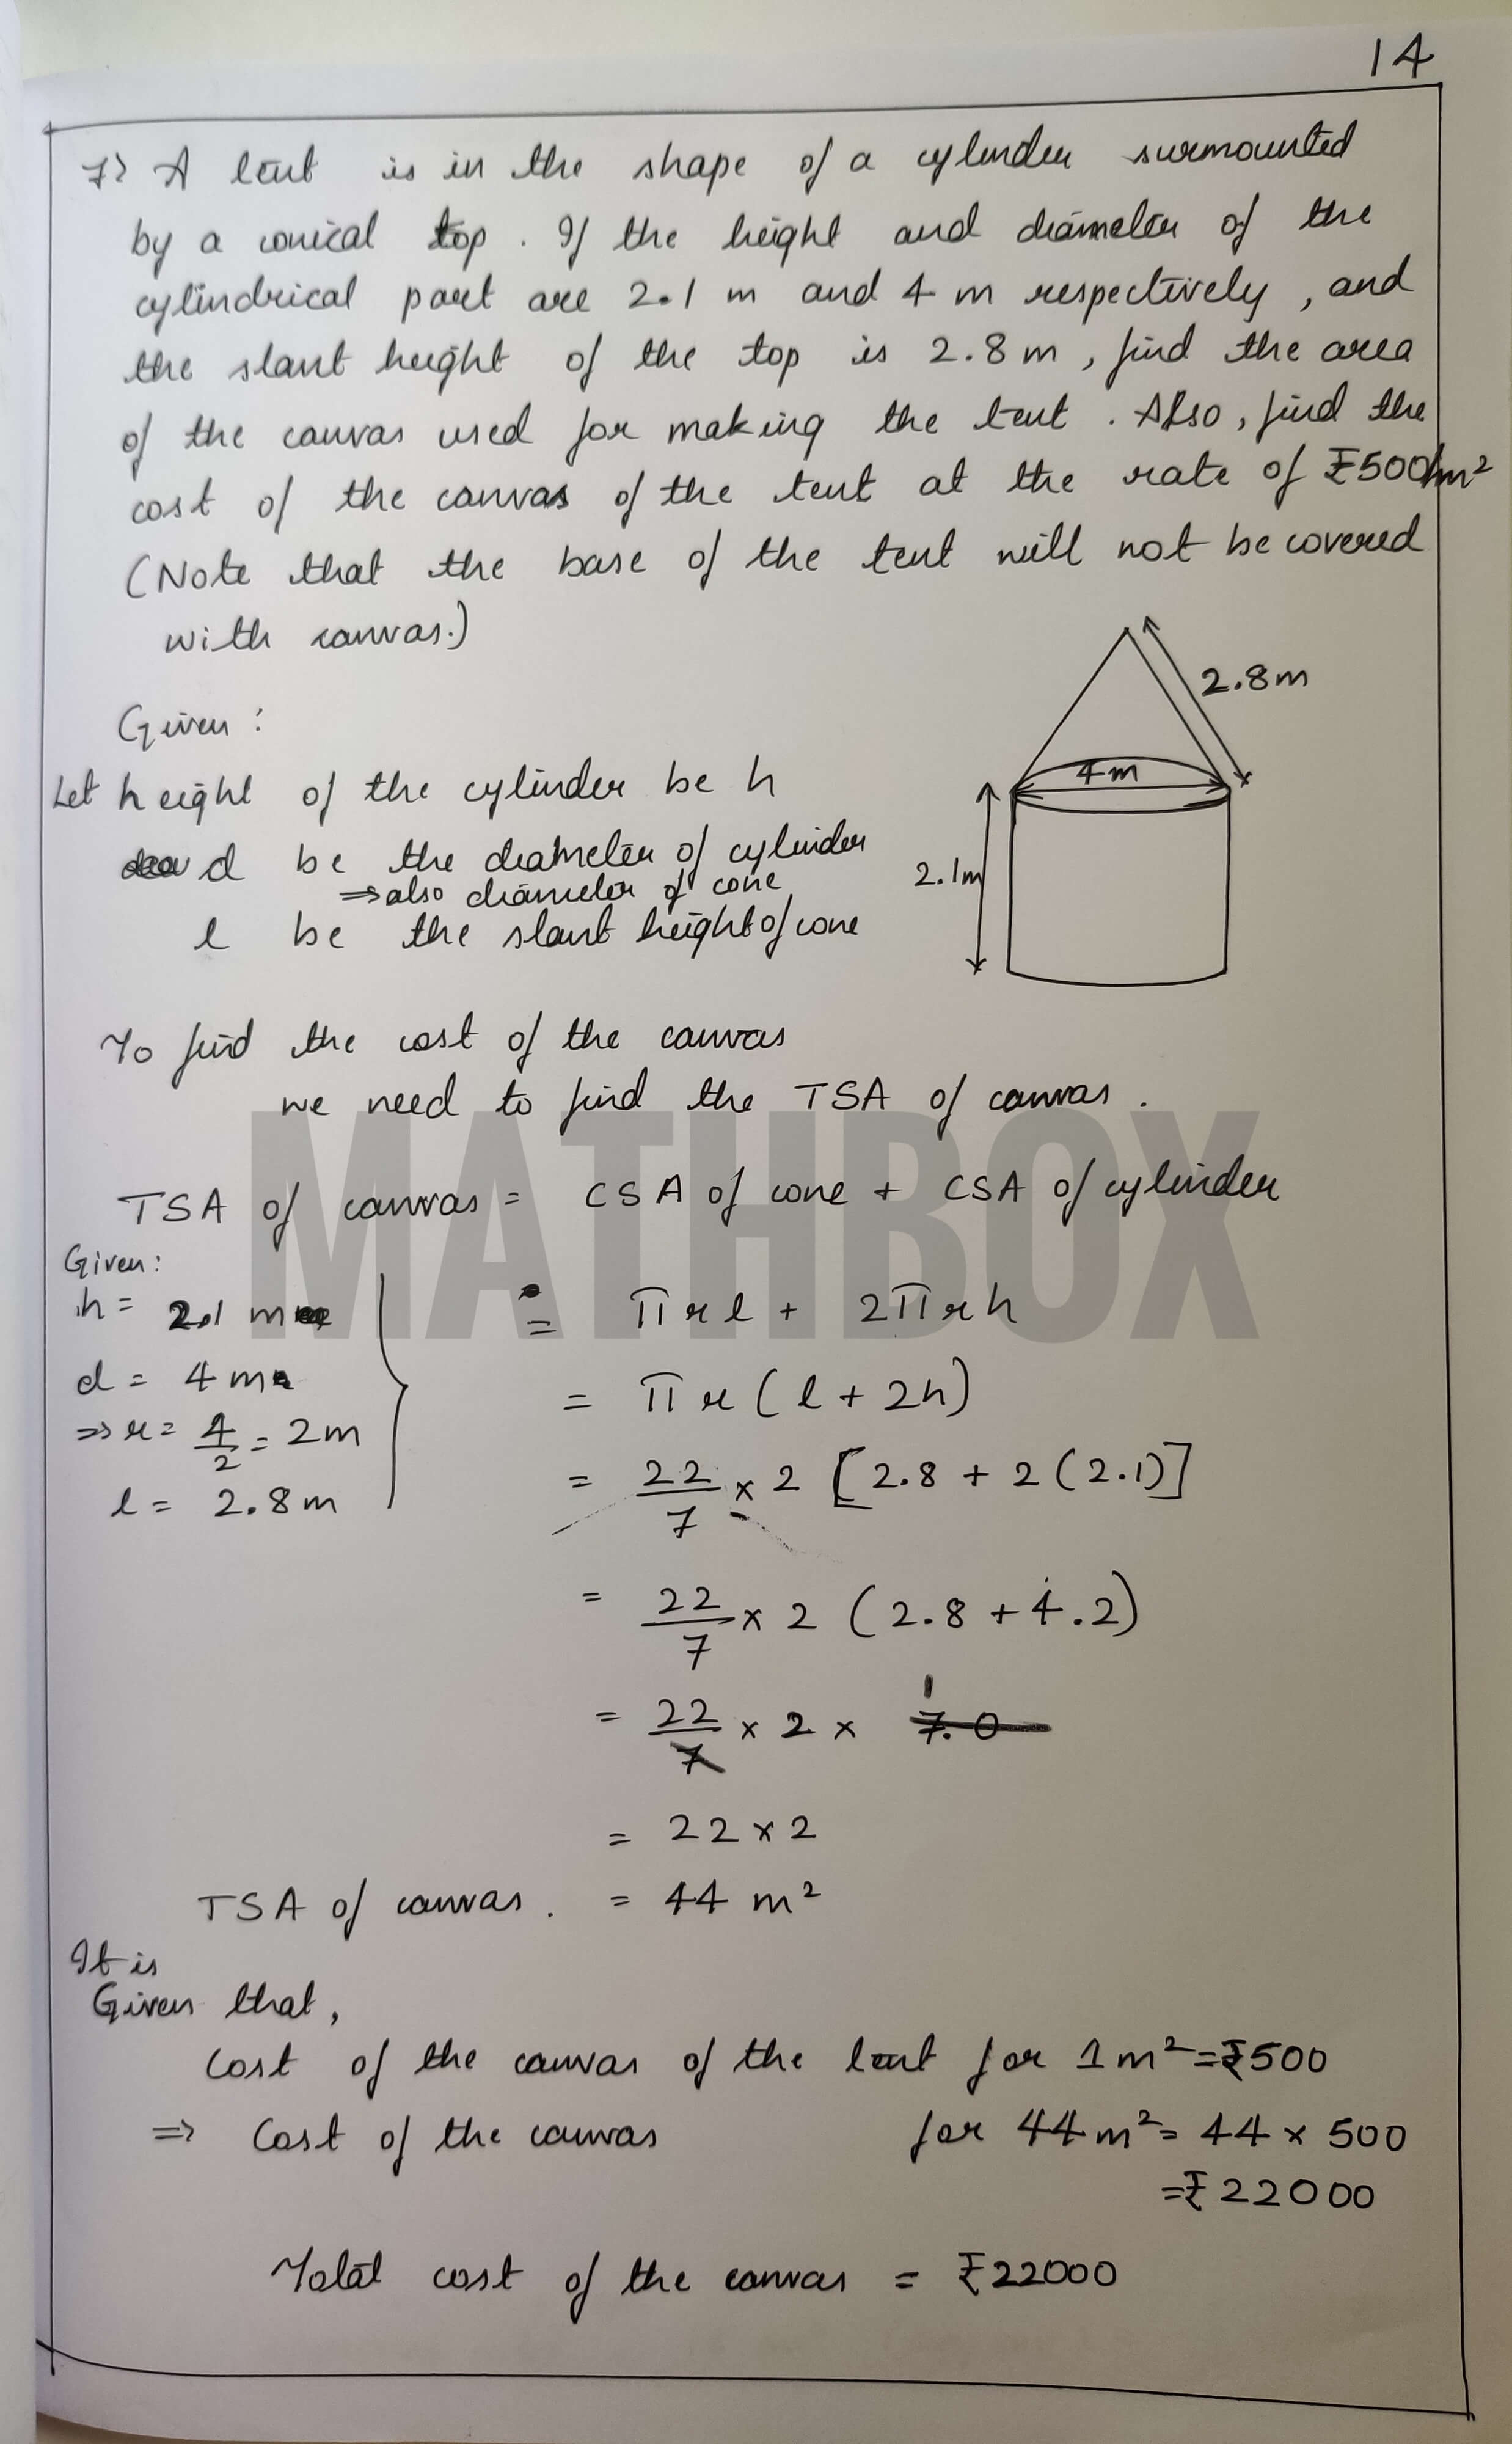 14
7> A tent is in the shape of a cylinder surmounted
by a conical top. If the height and diameter of the
cylindrical part are 2.1 m and 4 m respectively, and
the slant height of the top is 2.8 m, find the area
of the canvas used for making the tent. Also, find the
cost of the canvas of the tent at the rate of ₹500/m²
(Note that the base of the tent will not be covered
with canvas.)
2.8m
4m
2.1m
Given:
Let height of the cylinder be h
d be the diameter of cylinder
⇒ also diameter of cone
l be the slant height of cone
To find the cost of the canvas
we need to find the TSA of canvas.
MATHBOX
TSA of canvas = CSA of cone + CSA of cylinder
Given:
h = 2.1 m
d = 4 m
⇒ r = 4/2 = 2m
l = 2.8m
= πrl + 2πrh
= πr(l + 2h)
= 22/7 × 2 [2.8 + 2(2.1)]
= 22/7 × 2 (2.8 + 4.2)
= 22/7 × 2 × 7.0 1
= 22 × 2
TSA of canvas. = 44 m²
It is
Given that,
Cost of the canvas of the tent for 1m² = ₹500
⇒ Cost of the canvas for 44m² = 44 × 500
= ₹22000
Total cost of the canvas = ₹22000